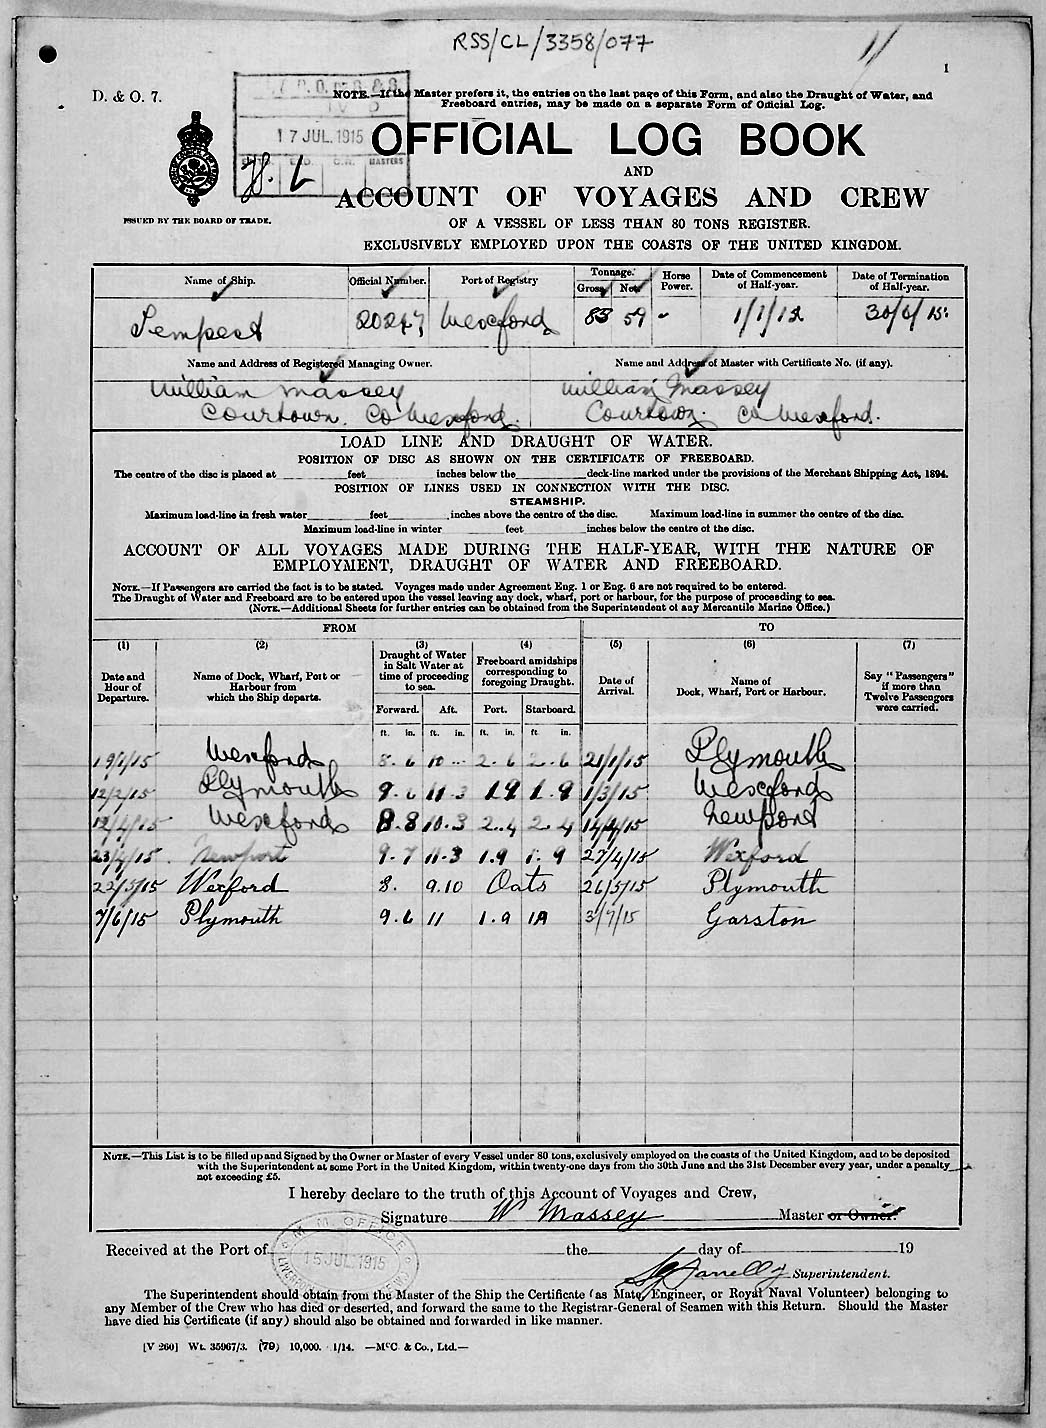 RSS/CL/3358/077
1
D. & O. 7.
NOTE.—If the Master prefers it, the entries on the last page of this Form, and also the Draught of Water, and
Freeboard entries, may be made on a separate Form of Official Log.
17 JUL. 1915
MASTERS
OFFICIAL LOG BOOK
AND
ACCOUNT OF VOYAGES AND CREW
ISSUED BY THE BOARD OF TRADE.
OF A VESSEL OF LESS THAN 80 TONS REGISTER.
EXCLUSIVELY EMPLOYED UPON THE COASTS OF THE UNITED KINGDOM.
Name of Ship. Official Number. Port of Registry Tonnage. Gross Net Horse Power. Date of Commencement of Half-year. Date of Termination of Half-year.
Tempest 20247 Wexford 83 59 - 1/1/15 30/6/15
Name and Address of Registered Managing Owner. Name and Address of Master with Certificate No. (if any).
William Massey William Massey
Courtown. Co Wexford. Courtown. Co Wexford.
LOAD LINE AND DRAUGHT OF WATER.
POSITION OF DISC AS SHOWN ON THE CERTIFICATE OF FREEBOARD.
The centre of the disc is placed at feet inches below the deck-line marked under the provisions of the Merchant Shipping Act, 1894.
POSITION OF LINES USED IN CONNECTION WITH THE DISC.
STEAMSHIP.
Maximum load-line in fresh water feet inches above the centre of the disc. Maximum load-line in summer the centre of the disc.
Maximum load-line in winter feet inches below the centre of the disc.
ACCOUNT OF ALL VOYAGES MADE DURING THE HALF-YEAR, WITH THE NATURE OF
EMPLOYMENT, DRAUGHT OF WATER AND FREEBOARD.
NOTE.—If Passengers are carried the fact is to be stated. Voyages made under Agreement Eng. 1 or Eng. 6 are not required to be entered.
The Draught of Water and Freeboard are to be entered upon the vessel leaving any dock, wharf, port or harbour, for the purpose of proceeding to sea.
(NOTE.—Additional Sheets for further entries can be obtained from the Superintendent of any Mercantile Marine Office.)
FROM TO
(1) (2) (3) (4) (5) (6) (7)
Date and Hour of Departure. Name of Dock, Wharf, Port or Harbour from which the Ship departs. Draught of Water in Salt Water at time of proceeding to sea. Freeboard amidships corresponding to foregoing Draught. Date of Arrival. Name of Dock, Wharf, Port or Harbour. Say "Passengers" if more than Twelve Passengers were carried.
Forward. Aft. Port. Starboard.
ft. in. ft. in. ft. in. ft in.
19/1/15 Wexford 8. 6 10 ... 2. 6 2. 6 21/1/15 Plymouth
12/2/15 Plymouth 9. 6 11. 3 1 9 1. 9 1/3/15 Wexford
12/4/15 Wexford 8. 8 10. 3 2. 4 2 4 14/4/15 Newport
23/4/15 Newport 9. 7 11. 3 1. 9 1. 9 27/4/15 Wexford
22/5/15 Wexford 8. 9.10 Oats 26/5/15 Plymouth
7/6/15 Plymouth 9. 6 11 1. 9 1A 3/7/15 Garston
NOTE.—This List is to be filled up and Signed by the Owner or Master of every Vessel under 80 tons, exclusively employed on the coasts of the United Kingdom, and to be deposited
with the Superintendent at some Port in the United Kingdom, within twenty-one days from the 30th June and the 31st December every year, under a penalty
not exceeding £5.
I hereby declare to the truth of this Account of Voyages and Crew,
Signature W Massey Master or Owner.
Received at the Port of the day of 19
M. M. OFFICE
15 JUL 1915
Superintendent.
The Superintendent should obtain from the Master of the Ship the Certificate (as Mate, Engineer, or Royal Naval Volunteer) belonging to
any Member of the Crew who has died or deserted, and forward the same to the Registrar-General of Seamen with this Return. Should the Master
have died his Certificate (if any) should also be obtained and forwarded in like manner.
[V 260] Wt. 35967/3. (79) 10,000. 1/14. —McC. & Co., Ltd.—